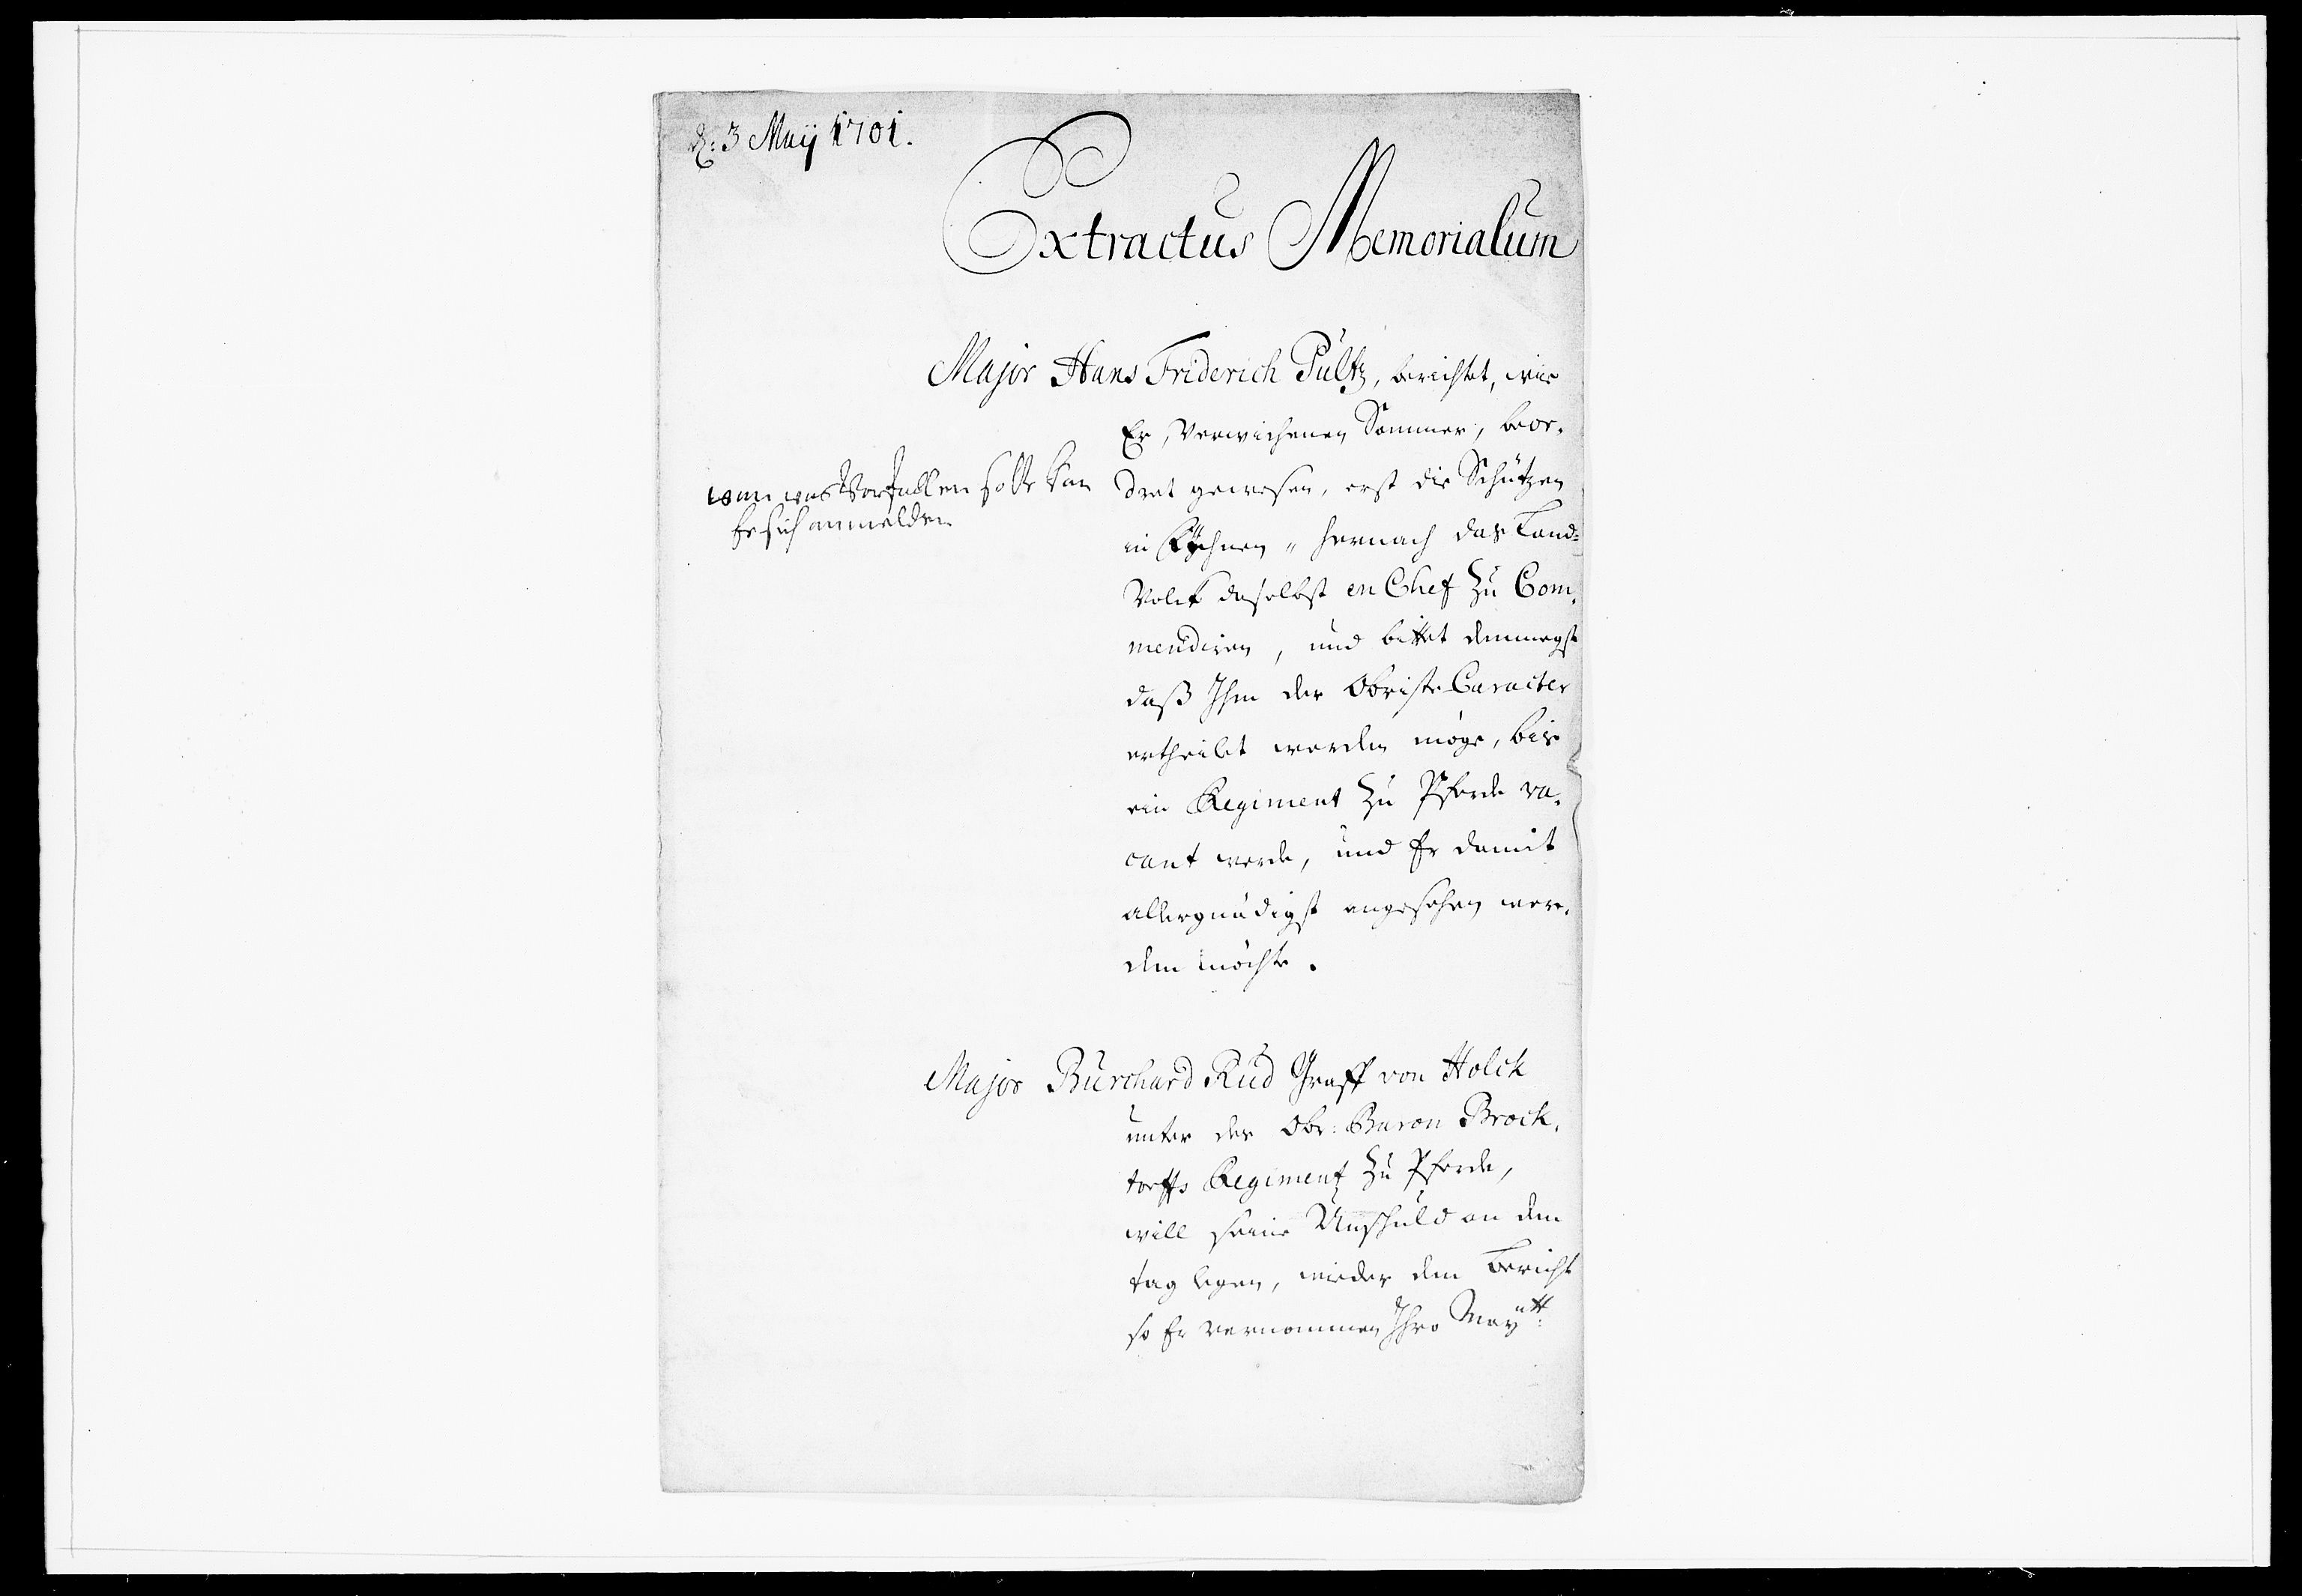 d: 3 Maÿ 1701.
Extractus Memorialum
Major Hans Friderich Pultz, berichtet, wie
Er, Verwichenen Sommer, beor-
dret gewesen, erst die Schützen
in hernach das Land-
Volck daselbst en Chef zu Com-
mendiren, und bittet demnegst
daß Ihm der Obriste Caracter
ertheilet werden möge, bis
ein Regiment zu Pferde va-
cant werde, und Er damit
allergnädigst angesehen wer-
den möchte.
wan was Vorfallen solte kan
Er sich anmelden
Major Burchard Rud Graff von Holck
unter des Obr: Baron Brock-
torffs Regiment zu Pferde,
will seine Unschuld an den
tag legen, wieder den Bericht
so Er vernommen Ihro Maÿtt: